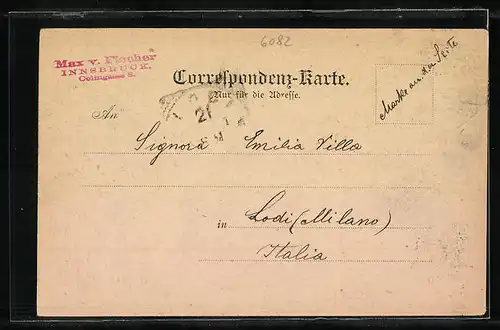 6082
Max v. Fischer
INNSBRUCK,
Colingasse 8.
Correspondenz-Karte.
Nur für die Adresse.
Marke an der Seite
An
Signora Emilia Villa
in Lodi (Milano)
Italia